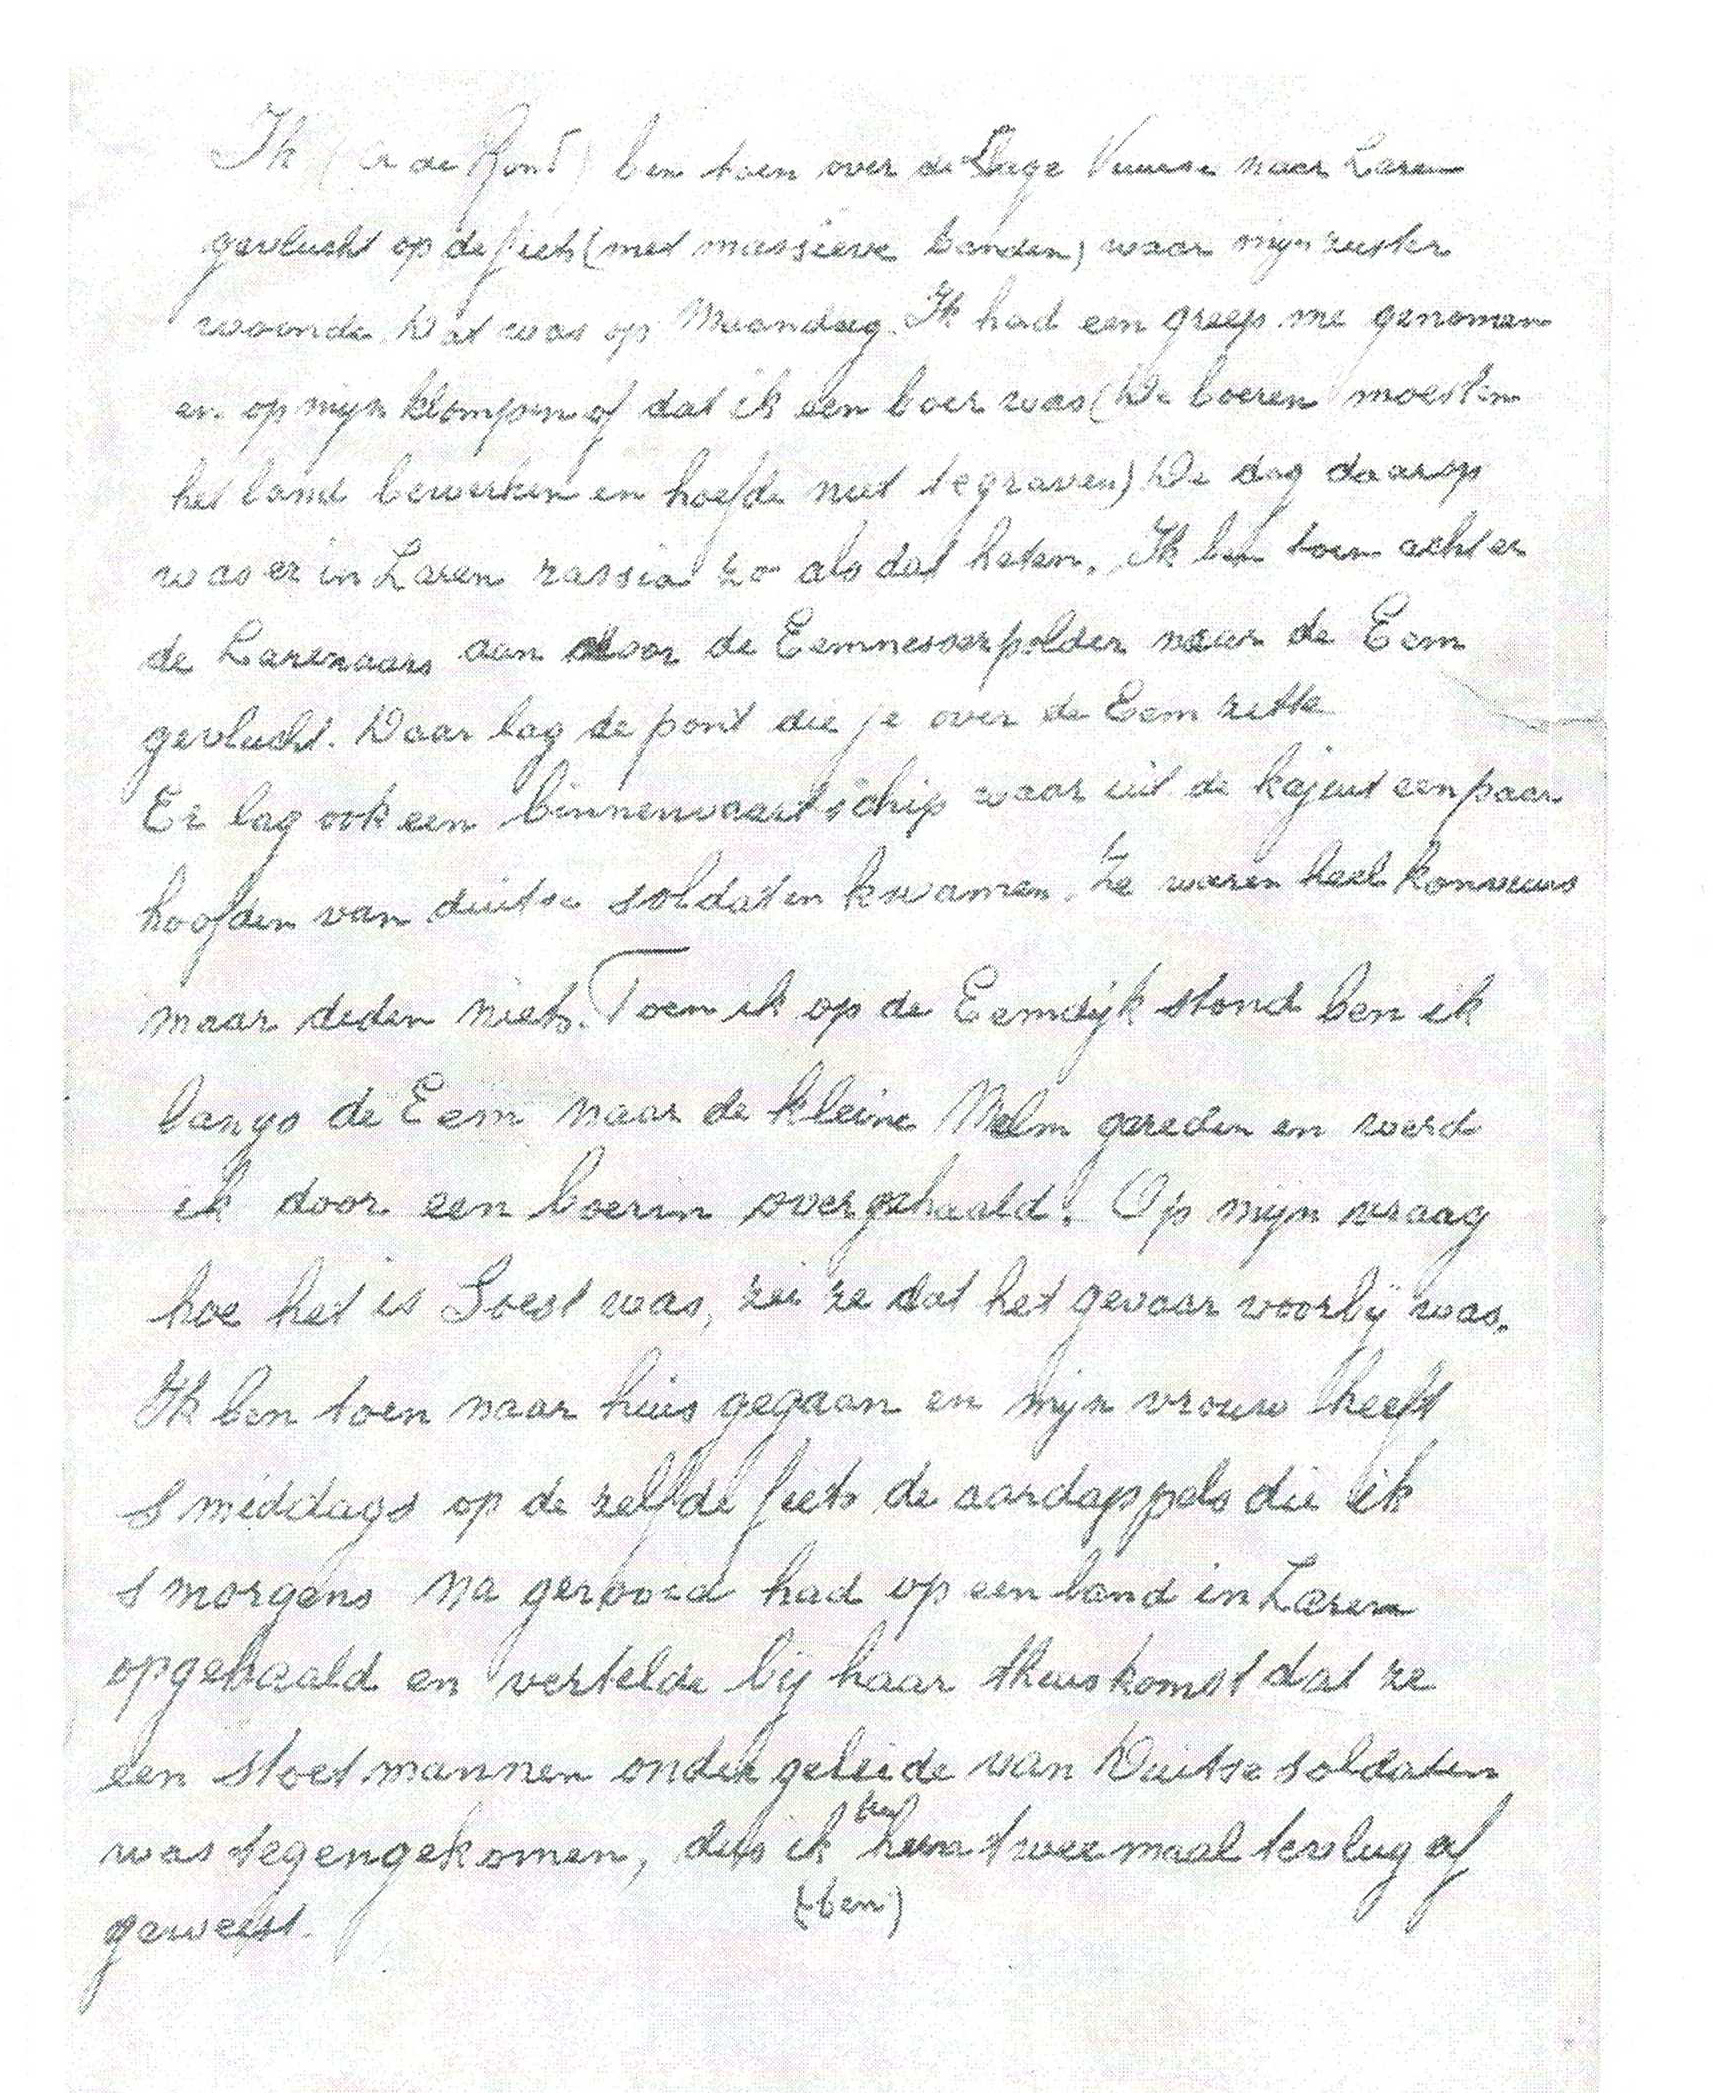 Ik ( de Rond) ben toen over de Lage Vuurse naar Laren
gevlucht op de fiets (met massieve banden) waar mijn zuster
woonde. Dat was op Maandag. Ik had een greep me genomen
en op mijn klompen of dat ik een boer was (De boeren moesten
het land bewerken en hoefde niet te graven) De dag daarop
was er in Laren rassia zo als dat heten. Ik ben toen achter
de Larenaars aan door de Eemnesserpolder naar de Eem
gevlucht. Daar lag de pont die je over de Eem zette
Er lag ook een binnenvaartschip waar uit de kajuit een paar
hoofden van duitse soldaten kwamen. Ze waren heel
maar deden niets. Toen ik op de Eemdijk stond ben ik
langs de Eem naar de kleine Melm gereden en werd
ik door een boerin overgehaald. Op mijn vraag
hoe het is Soest was, zei ze dat het gevaar voorbij was.
Ik ben toen naar huis gegaan en mijn vrouw heeft
s middags op de zelfde fiets de aardappels die ik
s morgens na gerooid had op een land in Laren
opgehaald en vertelde bij haar thuiskomst dat ze
een stoet mannen onder geleide van Duitse soldaten
was tegengekomen, dus ik twee maal terslug af
(-ben)
geweest.